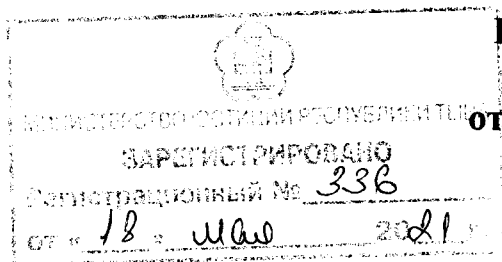 МИНИСТЕРСТВО ЮСТИЦИИ РЕСПУБЛИКИ ТЫВА
от
ЗАРЕГИСТРИРОВАНО
Регистрационный № 336
от « 18 » мая 2021 г.